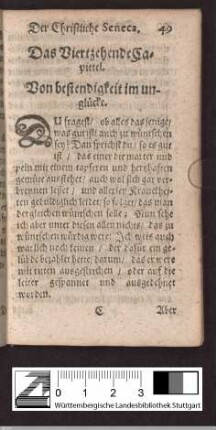 Der Christliche Seneca. 49
Das Viertzehende Ca-
pittel.
Von bestendigkeit im un-
glücke.
DU fragest / ob alles das jenige /
was gut ist auch zu wünschen
sey? Dan sprichstu / so es gut
ist / das einer die marter und
pein mit einem tapfern und hertzhaften
gemüte ausstehet; auch wol sich gar ver-
brennen lesset / und allerley Kranckhei-
ten gedüldiglich leidet; so folget / das man
dergleichen wünschen solle: Nun sehe
ich aber unter diesen allen nichts / das zu
wünschen würdig were: Ich weis auch
warlich noch keinen / der dafür ein ge-
lübde bezahlet hette; darum / das er were
mit ruten ausgestrichen / oder auf die
leiter gespannet und ausgedehnet
worden.
C Aber
0 1 2 3
Württembergische Landesbibliothek Stuttgart